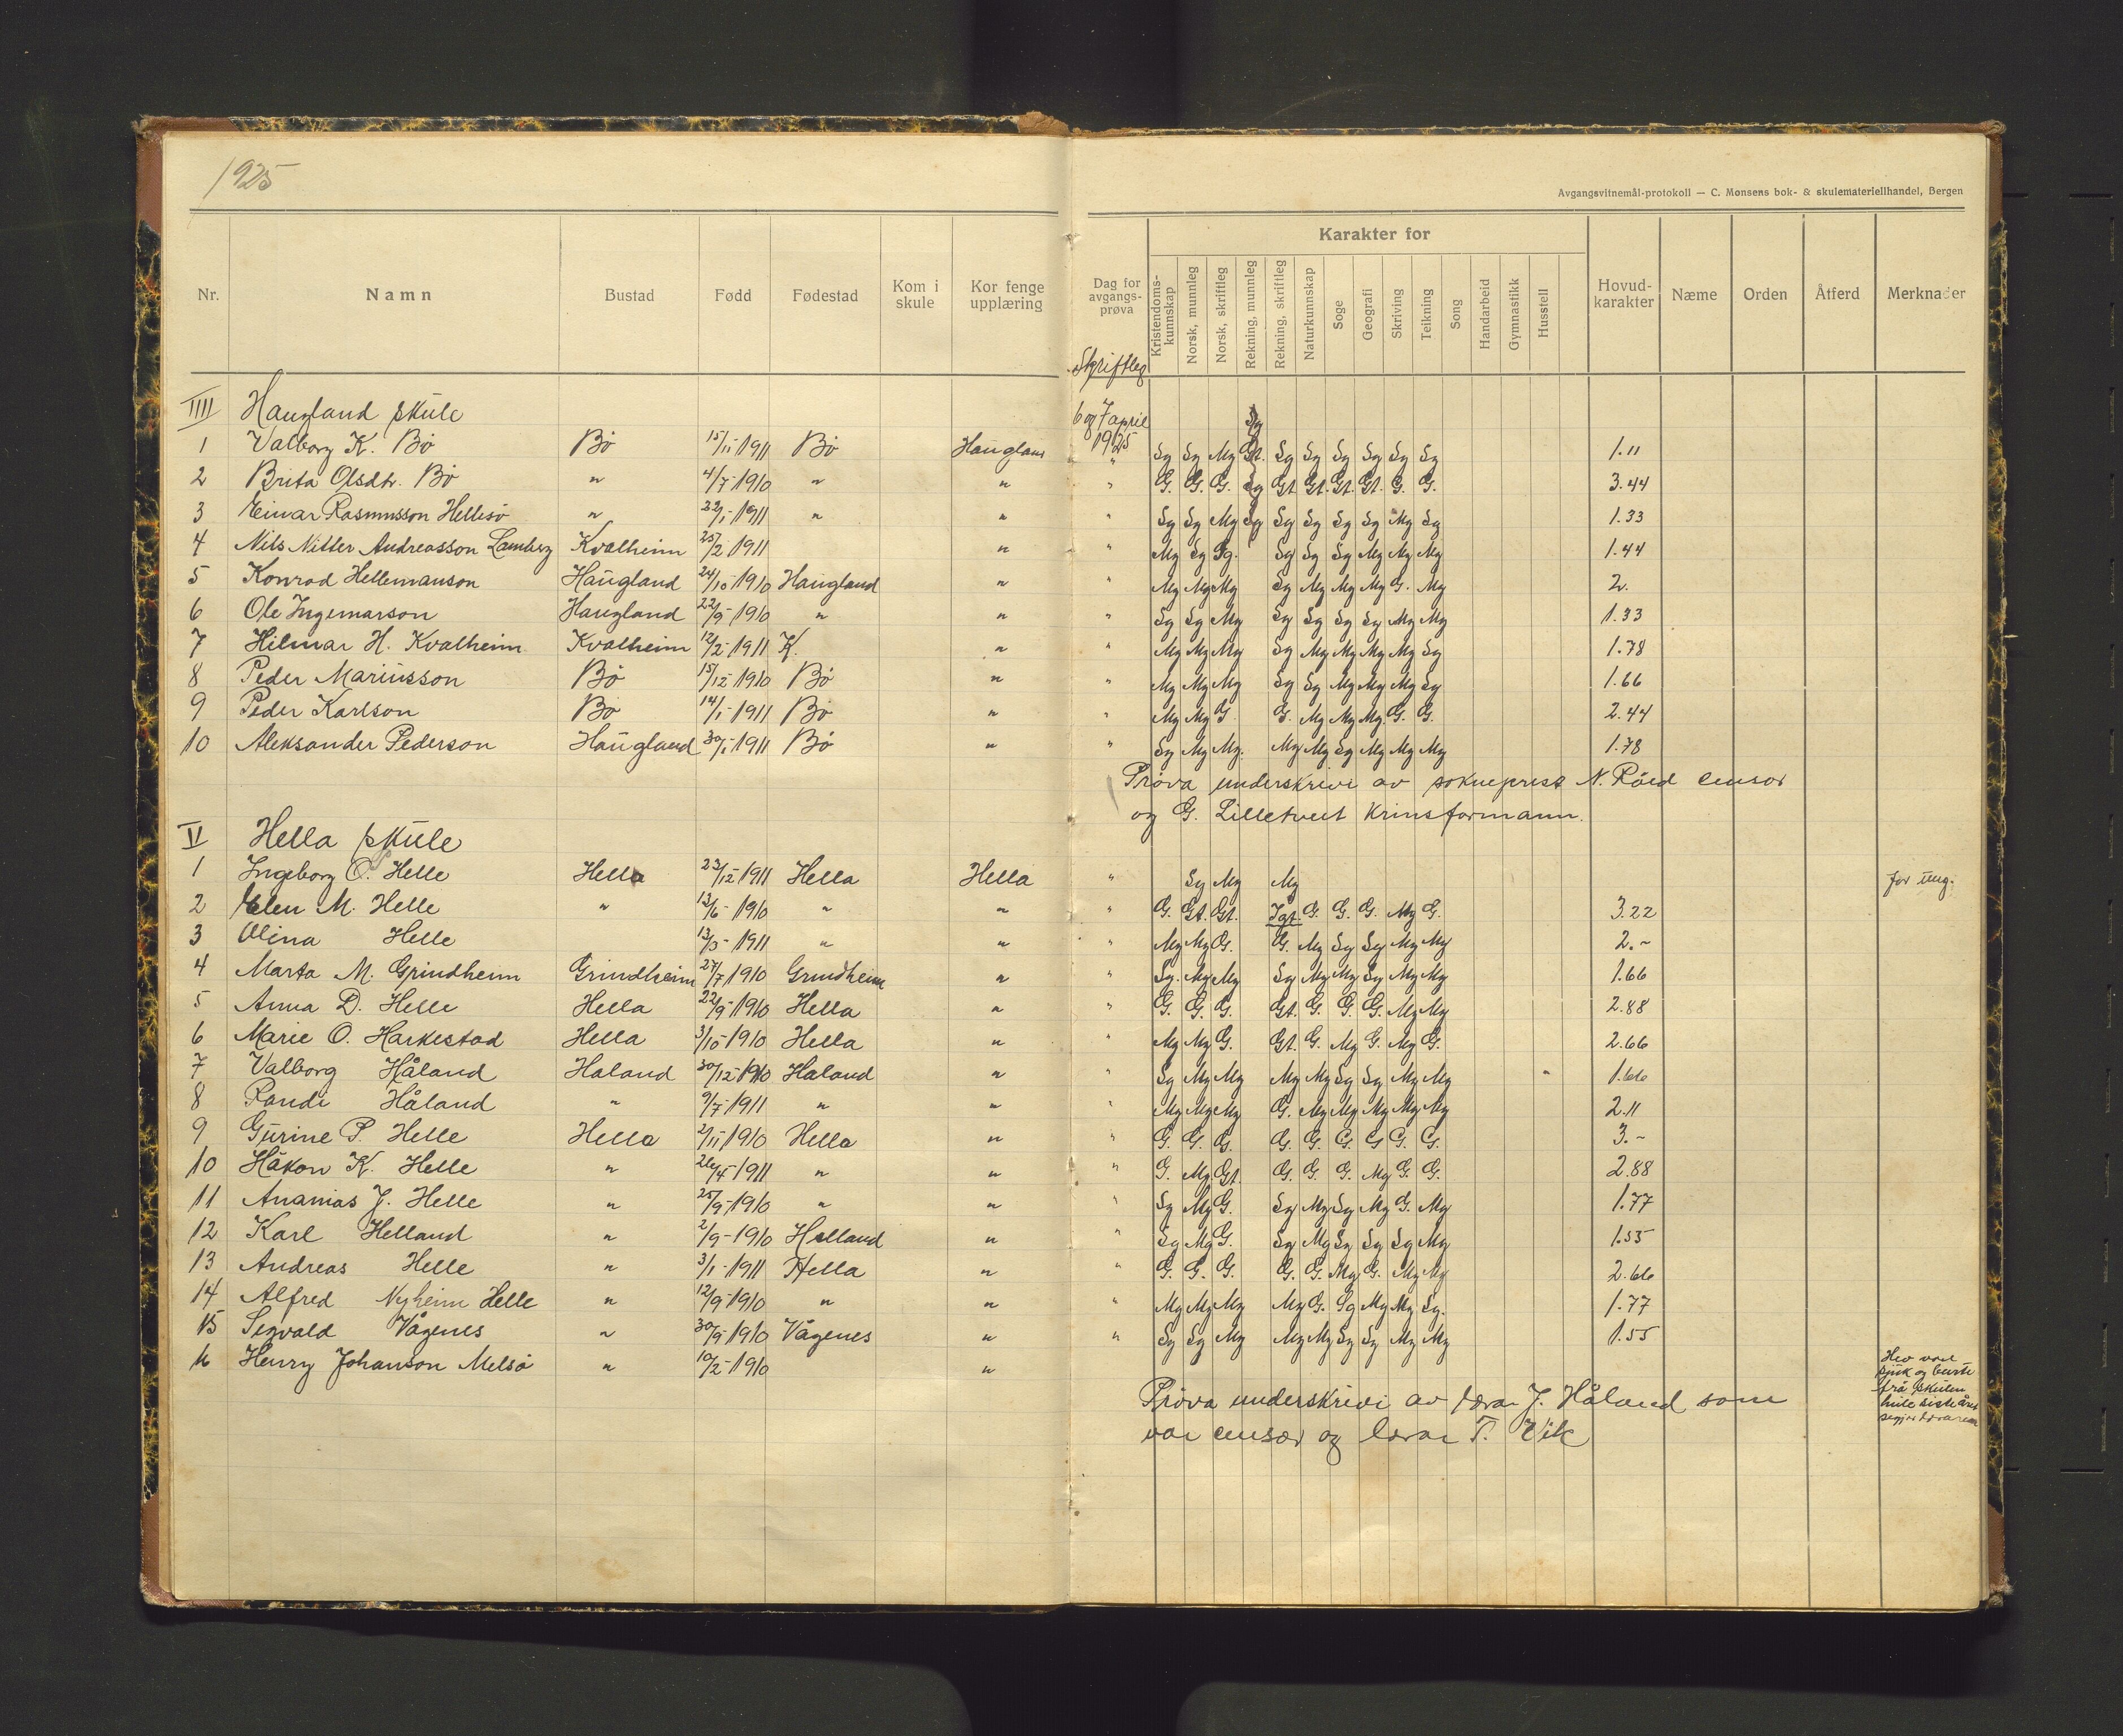 1925
Avgangsvitnemål-protokoll — C. Mønsens bok- & skulemateriellhandel, Bergen
Karakter for
Nr. Namn Bustad Fødd Fødestad Kom i skule Kor fenge upplæring Dag for avgangs-prøva Kristendoms-kunnskap Norsk, munnleg Norsk, skriftleg Rekning, munnleg Rekning, skriftleg Naturkunnskap Soge Geografi Skriving Teikning Song Handarbeid Gymnastikk Husstell Hovud-karakter Næme Orden Åtferd Merknader
Skriftleg
IIII Haugland skule 6 og 7 april
1 Valborg K. Bø Bø 15/11 1911 Bø Haugland 1925 Sg Sg Mg Sg Sg Sg Sg Sg Sg 1.11
2 Brita Olsdtr. Bø " 4/7-1910 " " " G. G. G. Gt. Gt. Gt. Gt. G. G. 3.44
3 Einar Rasmusson Hellesø " 22/1-1911 " " " Sg Sg Mg Sg Sg Sg Sg Mg Sg 1.33
4 Nils Nitter Andreasson Lamberg Kvalheim 25/2 1911 " " Mg Sg Sg. Sg Sg Sg Mg Mg Mg 1.44
5 Konrad Hellemanson Haugland 24/10-1910 Haugland " " Mg Mg Mg Sg Mg Mg Mg G. Mg 2.
6 Ole Ingemarson Haugland 22/9-1910 " " " Sg Sg Mg Sg Sg Sg Sg Mg Mg 1.33
7 Hilmar H. Kvalheim Kvalheim 12/2-1911 K. " " Mg Mg Mg Sg Mg Mg Mg Mg Sg 1.78
8 Peder Mariusson Bø 15/12-1910 Bø " " Mg Mg Mg Sg Sg Mg Mg Mg Sg 1.66
9 Peder Karlson Bø 14/1-1911 Bø " " Mg Mg G G. Mg Mg Mg. G. G. 2.44
10 Aleksander Pederson Haugland 30/1-1911 Bø " " Sg Mg Mg. Mg Mg Sg Mg Mg Mg 1.78
Prøva underskrivi av sokneprest N. Røed censor
og G. Lilletveit Krinsformann.
V Hella skule
1 Ingeborg O. Helle Hella 23/12 1911 Hella Hella " Sg Mg Mg for ung.
2 Elen M. Helle " 13/6-1910 " " " G. Gt. Gt. Igt. G. G. G. Mg G. 3.22
3 Olina Helle 13/3-1911 " " " Mg Mg G. G. Mg Sg Sg Mg Mg 2.-
4 Marta M. Grindheim Grindheim 27/7 1910 Grindheim " " Sg. Mg Mg Sg Mg Mg Sg Mg Mg 1.66
5 Anna D. Helle Hella 22/9-1910 Hella " " G. G. G. Gt. G. G. G. Mg Mg 2.88
6 Marie O. Harkestad Hella 3/10-1910 Hella " " Mg Mg G. Gt. G. Mg G. Mg G. 2.66
7 Valborg Håland Håland 30/12-1910 Håland " " Sg Mg Mg Mg Mg Sg Sg Mg Mg 1.66
8 Randi Håland " 9/7-1911 " " " Mg Mg Mg G. Mg Mg Mg Mg Mg 2.11
9 Gurine P. Helle Hella 2/11 1910 Hella " " G. G. G. G. G. G. G G. G. 3.-
10 Håkon K. Helle " 26/4 1911 " " " G. Mg Gt. G. G. G. Mg G. G. 2.88
11 Ananias J. Helle " 25/9-1910 " " " Sg Mg G. Sg Mg Sg Mg G. Mg 1.77
12 Karl Helland " 2/9-1910 Helland " " Sg Mg G. Sg Mg Sg Sg Sg Mg 1.55
13 Andreas Helle " 3/1-1911 Hella " " G. G. G. G. G. Mg G. Mg Mg 2.66
14 Alfred Nyheim Helle " 12/9-1910 " " " Mg Mg Mg Mg G. Sg Mg Mg Sg. 1.77
15 Sigvald Vågenes " 30/9-1910 Vågenes " " Sg Sg Mg Mg Mg Sg Sg Mg Mg 1.55
16 Henry Johanson Melsø " 10/2-1910 "
Hev vore
sjuk og burte
frå skulen
heile siste året
segjer læraren
Prøva underskrivi av lærar J. Håland som
var censor og lærar T. Vik